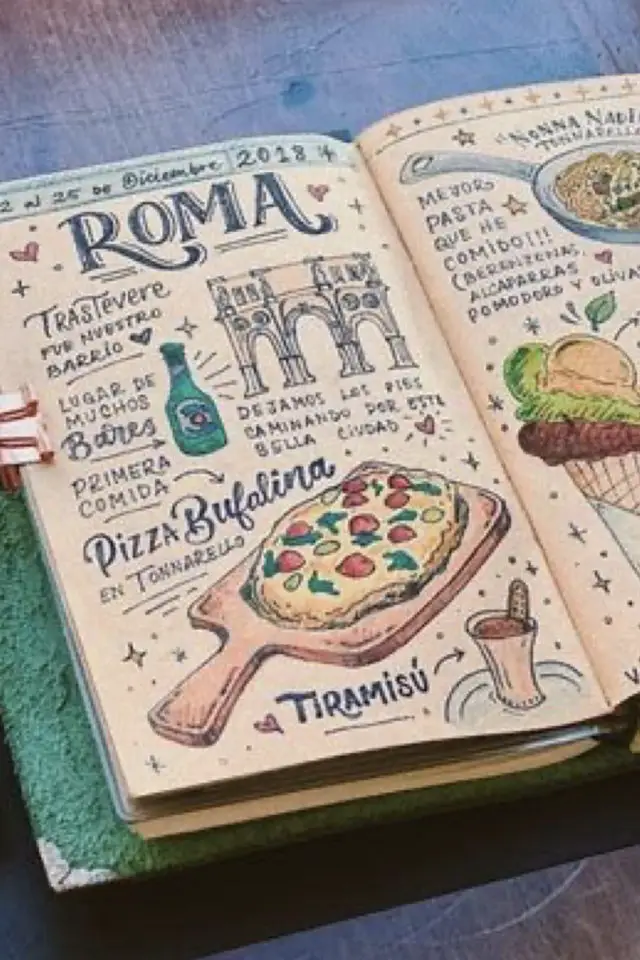 2 al 25 de Diciembre 2018
ROMA
TRASTÉVERE
FUE NUESTRO
BARRIO
LUGAR DE
MUCHOS
Bares
PRIMERA
COMIDA
PIZZA Bufalina
EN TONNARELLO
DEJAMOS LOS PIES
CAMINANDO POR ESTA
BELLA CIUDAD
TIRAMISÚ
"NONNA
TONNARELLO
MEJOR
PASTA
QUE HE
COMIDO!!!
(BERENJENAS,
ALCAPARRAS
POMODORO Y OLIVAS